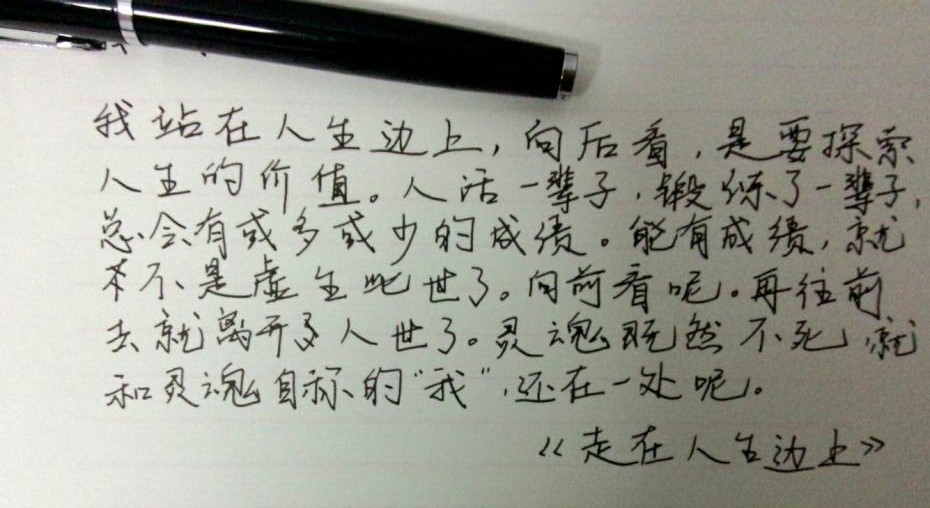 我站在人生边上，向后看，是要探索
人生的价值。人活一辈子，锻练了一辈子，
总会有或多或少的成绩。能有成绩，就
不是虚生此世了。向前看呢。再往前
去就离开人世了。灵魂既然不死，就
和灵魂自称的“我”，还在一处呢。
《走在人生边上》